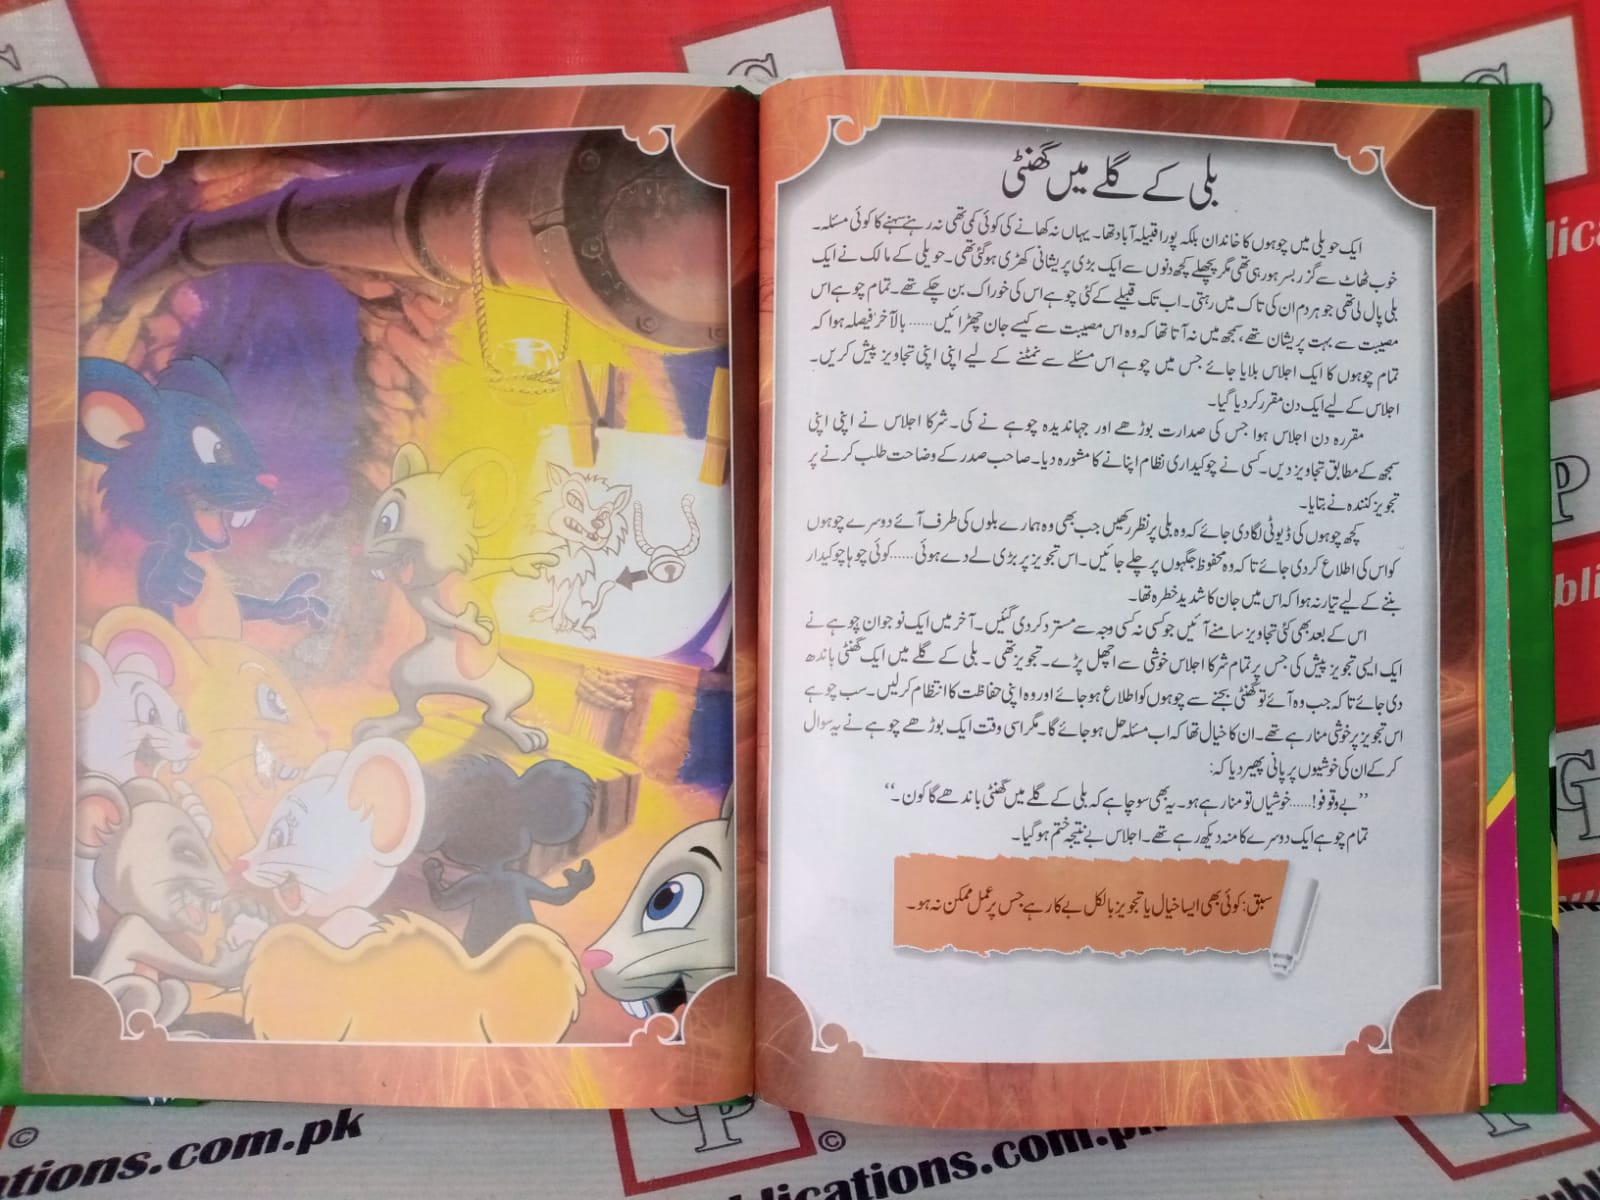 بلی کے گلے میں گھنٹی
ایک حویلی میں چوہوں کا خاندان بلکہ پورا قبیلہ آباد تھا۔ یہاں نہ کھانے کی کوئی کمی تھی نہ رہنے سہنے کا کوئی مسئلہ۔
خوب ٹھاٹ سے گزر بسر ہو رہی تھی مگر پچھلے کچھ دنوں سے ایک بڑی پریشانی کھڑی ہو گئی تھی۔ حویلی کے مالک نے ایک
بلی پال لی تھی جو ہر دم ان کی تاک میں رہتی۔ اب تک قبیلے کے کئی چوہے اس کی خوراک بن چکے تھے۔ تمام چوہے اس
مصیبت سے بہت پریشان تھے، سمجھ میں نہ آتا تھا کہ وہ اس مصیبت سے کیسے جان چھڑائیں...... بالآخر فیصلہ ہوا کہ
تمام چوہوں کا ایک اجلاس بلایا جائے جس میں چوہے اس مسئلے سے نمٹنے کے لیے اپنی اپنی تجاویز پیش کریں۔
اجلاس کے لیے ایک دن مقرر کر دیا گیا۔
مقررہ دن اجلاس ہوا جس کی صدارت بوڑھے اور جہاندیدہ چوہے نے کی۔ شرکا اجلاس نے اپنی اپنی
سمجھ کے مطابق تجاویز دیں۔ کسی نے چوکیداری نظام اپنانے کا مشورہ دیا۔ صاحب صدر کے وضاحت طلب کرنے پر
تجویز کنندہ نے بتایا۔
کچھ چوہوں کی ڈیوٹی لگا دی جائے کہ وہ بلی پر نظر رکھیں جب بھی وہ ہمارے بلوں کی طرف آئے دوسرے چوہوں
کو اس کی اطلاع کر دی جائے تا کہ وہ محفوظ جگہوں پر چلے جائیں۔ اس تجویز پر بڑی لے دے ہوئی ...... کوئی چوہا چوکیدار
بننے کے لیے تیار نہ ہوا کہ اس میں جان کا شدید خطرہ تھا۔
اس کے بعد بھی کئی تجاویز سامنے آئیں جو کسی نہ کسی وجہ سے مسترد کر دی گئیں۔ آخر میں ایک نوجوان چوہے نے
ایک ایسی تجویز پیش کی جس پر تمام شرکا اجلاس خوشی سے اچھل پڑے۔ تجویز تھی ۔ بلی کے گلے میں ایک گھنٹی باندھ
دی جائے تا کہ جب وہ آئے تو گھنٹی بجنے سے چوہوں کو اطلاع ہو جائے اور وہ اپنی حفاظت کا انتظام کر لیں۔ سب چوہے
اس تجویز پر خوشی منا رہے تھے۔ ان کا خیال تھا کہ اب مسئلہ حل ہو جائے گا۔ مگر اسی وقت ایک بوڑھے چوہے نے یہ سوال
کر کے ان کی خوشیوں پر پانی پھیر دیا کہ:
”بے وقوفو! ...... خوشیاں تو منا رہے ہو۔ یہ بھی سوچا ہے کہ بلی کے گلے میں گھنٹی باندھے گا کون۔“
تمام چوہے ایک دوسرے کا منہ دیکھ رہے تھے۔ اجلاس بے نتیجہ ختم ہو گیا۔
سبق: کوئی بھی ایسا خیال یا تجویز بالکل بے کار ہے جس پر عمل ممکن نہ ہو۔
©
ations.com.pk
©
blications.com.pk